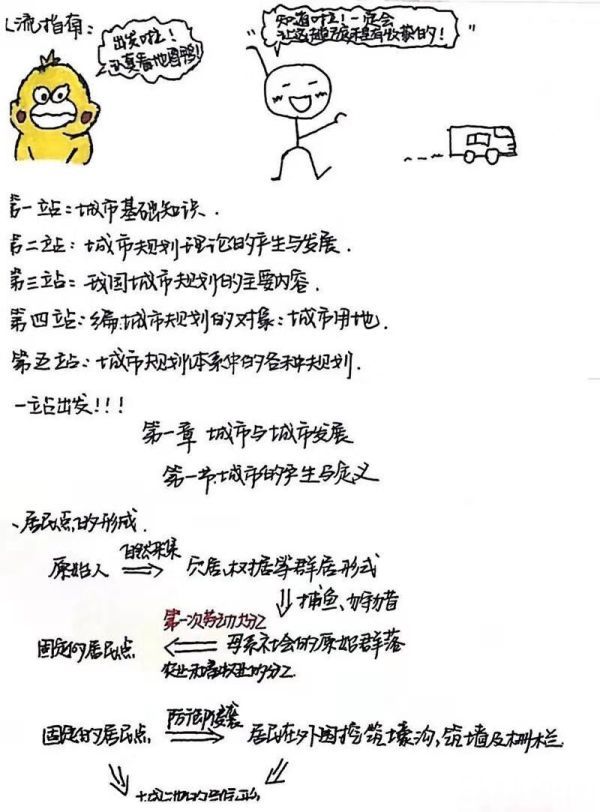 流指南：
出发啦！
认真看地图鸭！
知道啦！一定会
让这趟旅程有收获的！
第一站：城市基础知识．
第二站：城市规划理论的产生与发展．
第三站：我国城市规划的主要内容．
第四站：编城市规划的对象：城市用地．
第五站：城市规划体系中的各种规划．
一站出发！！！
第一章 城市与城市发展
第一节城市的产生与定义
、居民点的形成．
自然采集
原始人 穴居、树居等群居形式
捕鱼、狩猎
第一次劳动大分工
固定的居民点 母系社会的原始群落
农业和畜牧业的分工
防御侵袭
固定的居民点 居民在外围挖筑壕沟，筑墙及栅栏
城池的雏形